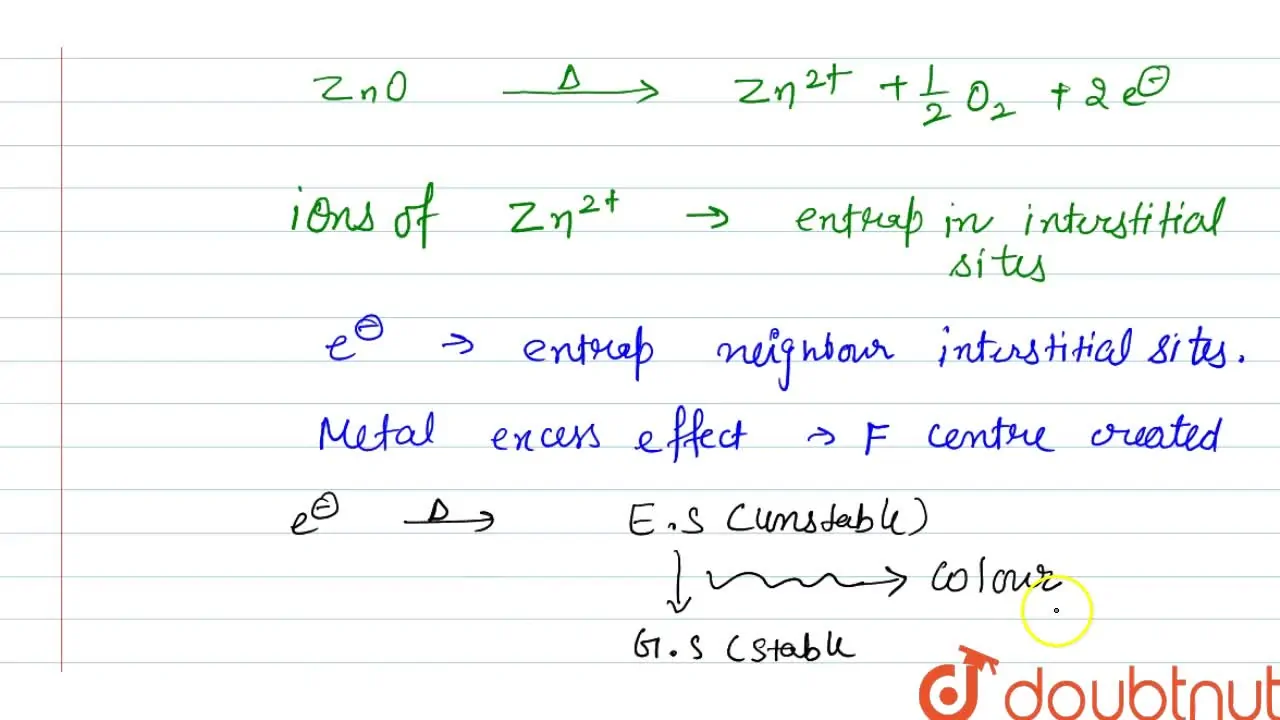 ZnO —Δ→ Zn²⁺ + 1/2 O₂ + 2e⊖
ions of Zn²⁺ → entrap in interstitial
sites
e⊖ → entrap neighbour interstitial sites.
Metal excess effect → F centre created
e⊖ —Δ→ E.S (unstable)
↓ → colour
G.S (stable
doubtnut